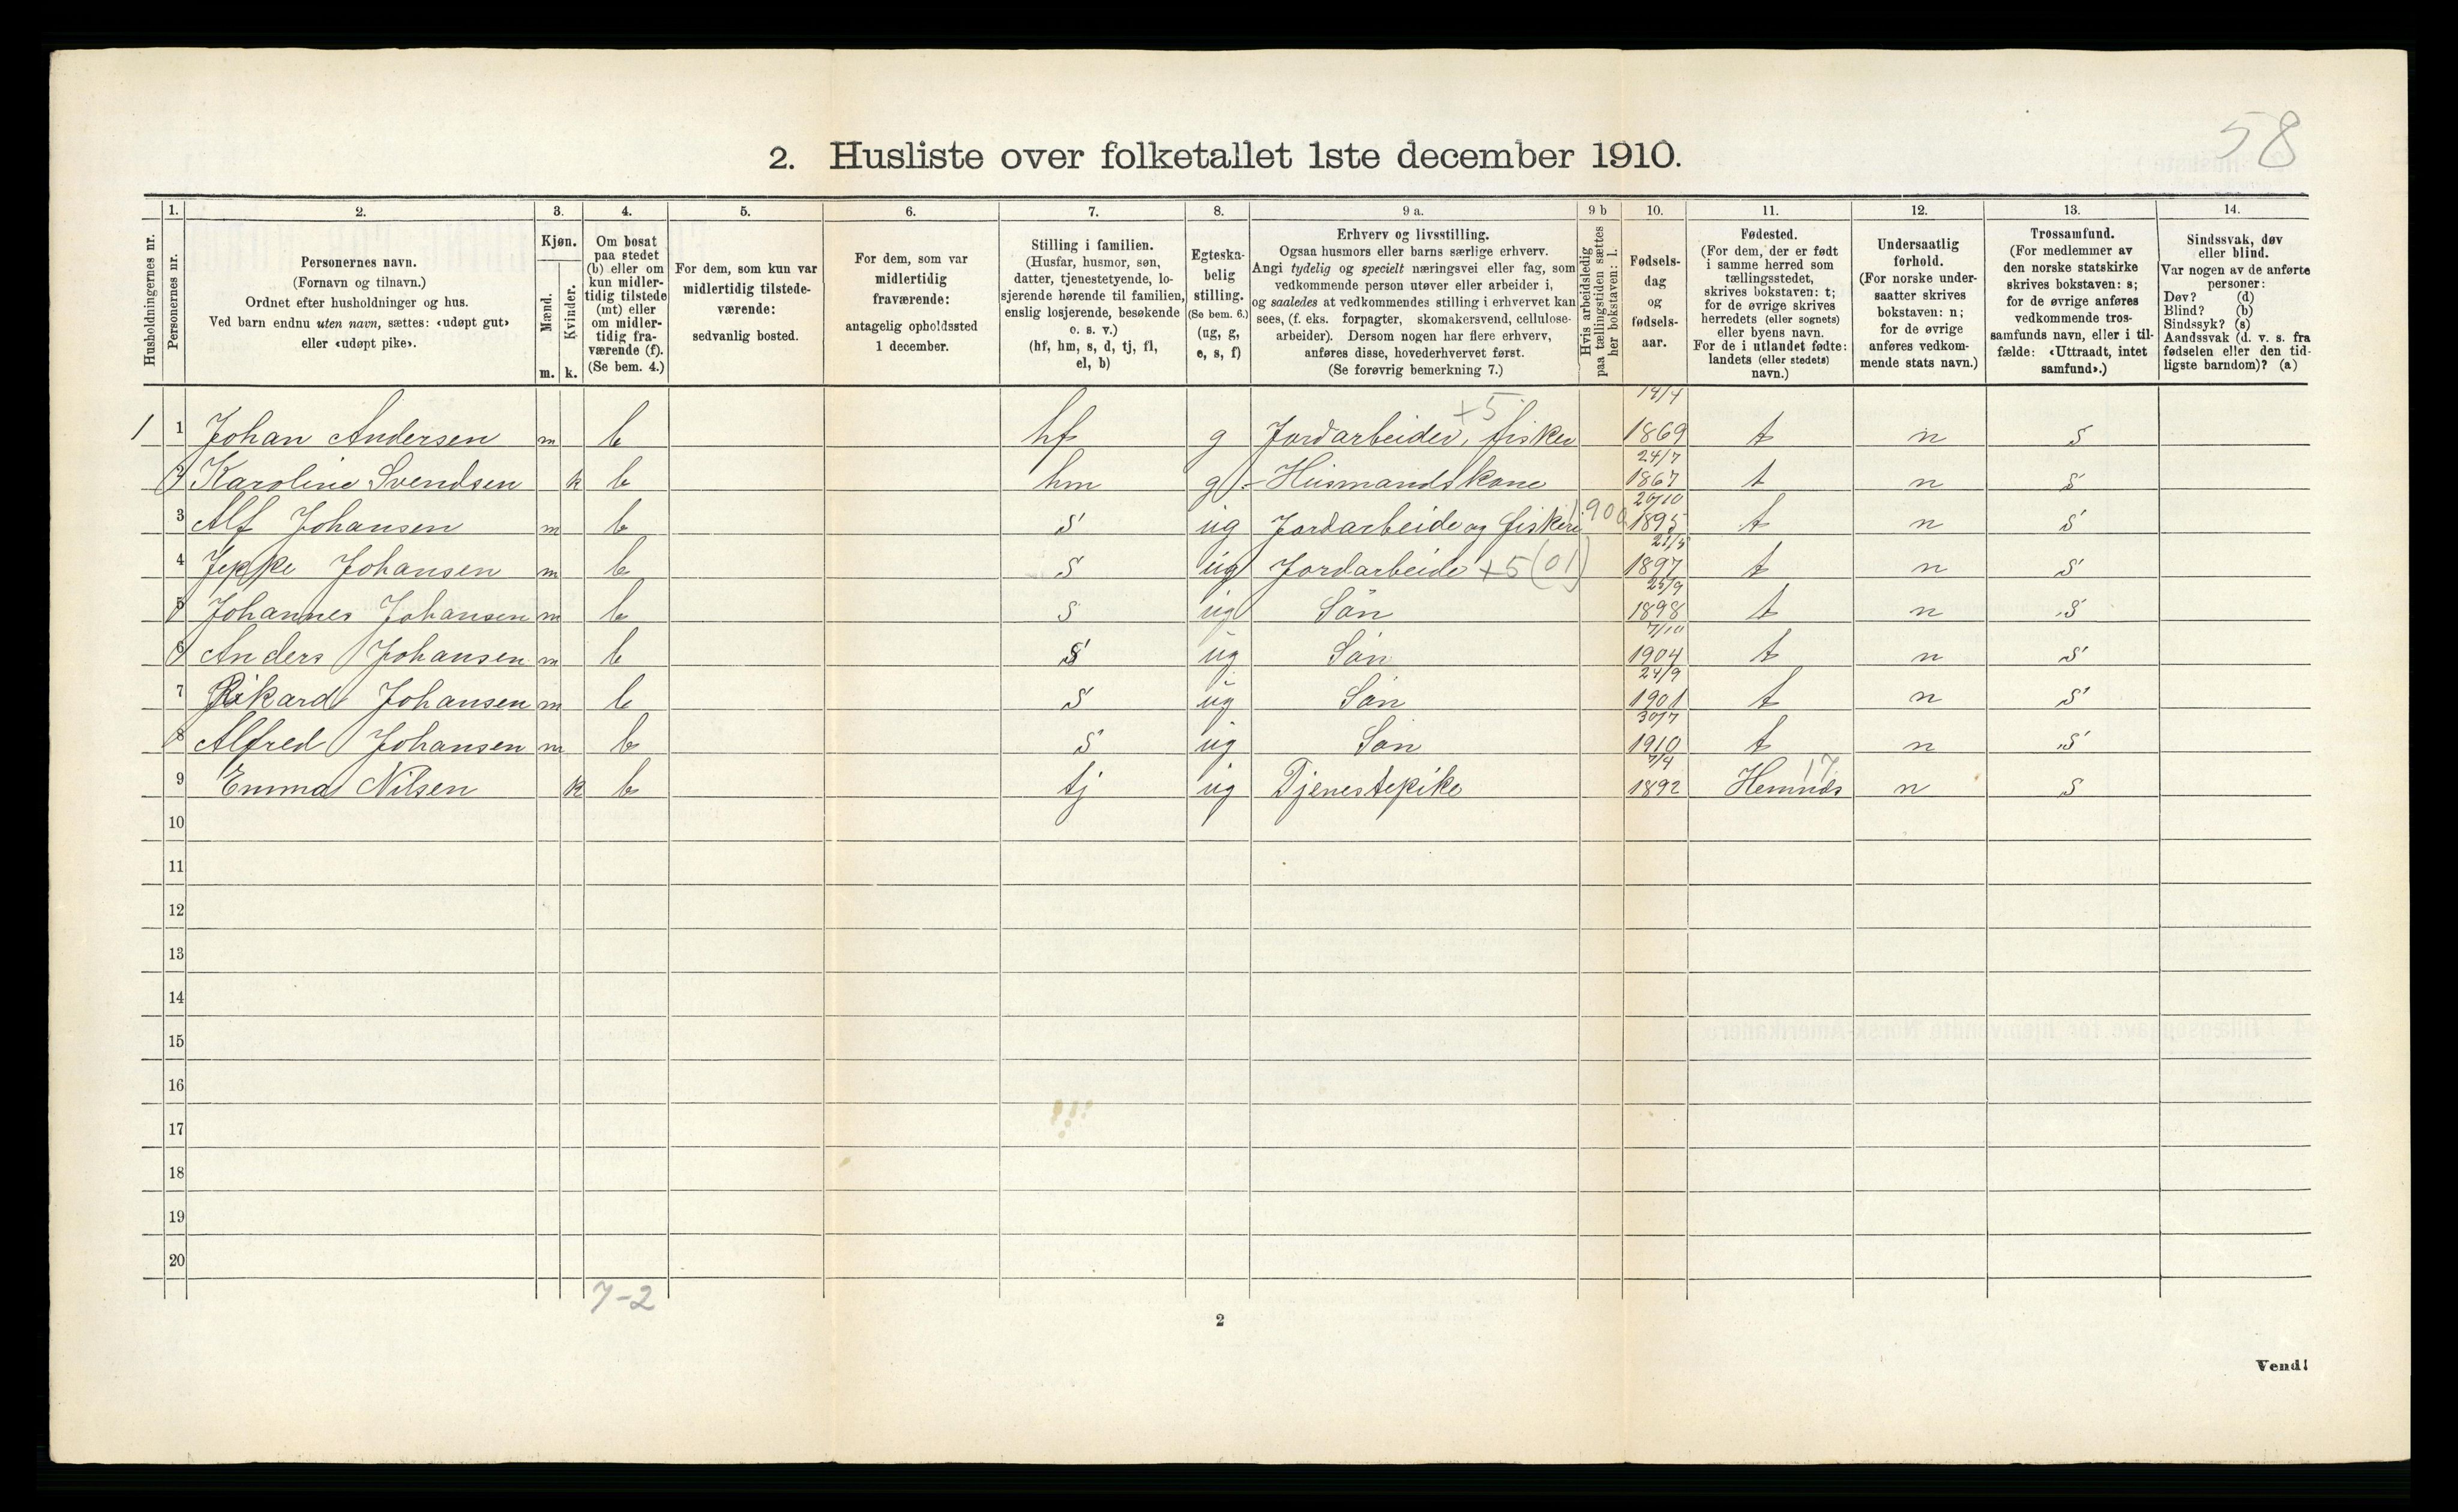 58
2. Husliste over folketallet 1ste december 1910.
Husholdningernes nr.
1. Personernes nr.
2. Personernes navn.
(Fornavn og tilnavn.)
Ordnet efter husholdninger og hus.
Ved barn endnu uten navn, sættes: «udøpt gut»
eller «udøpt pike».
3. Kjøn.
Mænd. m.
Kvinder. k.
4. Om bosat
paa stedet
(b) eller om
kun midler-
tidig tilstede
(mt) eller
om midler-
tidig fra-
værende (f).
(Se bem. 4.)
5. For dem, som kun var
midlertidig tilstede-
værende:
sedvanlig bosted.
6. For dem, som var
midlertidig
fraværende:
antagelig opholdssted
1 december.
7. Stilling i familien.
(Husfar, husmor, søn,
datter, tjenestetyende, lo-
sjerende hørende til familien,
enslig losjerende, besøkende
o. s. v.)
(hf, hm, s, d, tj, fl,
el, b)
8. Egteska-
belig
stilling.
(Se bem. 6.)
(ug, g,
e, s, f)
9 a. Erhverv og livsstilling.
Ogsaa husmors eller barns særlige erhverv.
Angi tydelig og specielt næringsvei eller fag, som
vedkommende person utøver eller arbeider i,
og saaledes at vedkommendes stilling i erhvervet kan
sees, (f. eks. forpagter, skomakersvend, cellulose-
arbeider). Dersom nogen har flere erhverv,
anføres disse, hovederhvervet først.
(Se forøvrig bemerkning 7.)
9 b Hvis arbeidsledig
paa tællingstiden sættes
her bokstaven: l.
10. Fødsels-
dag
og
fødsels-
aar.
11. Fødested.
(For dem, der er født
i samme herred som
tællingsstedet,
skrives bokstaven: t;
for de øvrige skrives
herredets (eller sognets)
eller byens navn.
For de i utlandet fødte:
landets (eller stedets)
navn.)
12. Undersaatlig
forhold.
(For norske under-
saatter skrives
bokstaven: n;
for de øvrige
anføres vedkom-
mende stats navn.)
13. Trossamfund.
(For medlemmer av
den norske statskirke
skrives bokstaven: s;
for de øvrige anføres
vedkommende tros-
samfunds navn, eller i til-
fælde: «Uttraadt, intet
samfund».)
14. Sindssvak, døv
eller blind.
Var nogen av de anførte
personer:
Døv? (d)
Blind? (b)
Sindssyk? (s)
Aandssvak (d. v. s. fra
fødselen eller den tid-
ligste barndom)? (a)
1 1 Johan Andersen m b hf g Jordarbeider, fisker +5 14/4 1869 t n s
2 Karoline Svendsen k b hm g - Husmandskone 24/7 1867 t n s
3 Alf Johansen m b s ug Jordarbeide og fiskeri 900 20/10 1895 t n s
4 Jeppe Johansen m b s ug Jordarbeide +5 (01) 21/5 1897 t n s
5 Johannes Johansen m b s ug Sön 25/9 1898 t n s
6 Anders Johansen m b s ug Sön 7/10 1904 t n s
7 Rikard Johansen m b s ug Sön 24/9 1901 t n s
8 Alfred Johansen m b s ug Sön 30/7 1910 t n s
9 Emma Nilsen k b tj ug Tjenestepike 7/4 1892 Hemnes 17 n s
10
11
12
13
14
15
16
17
18
19
20
7-2
2
Vend!